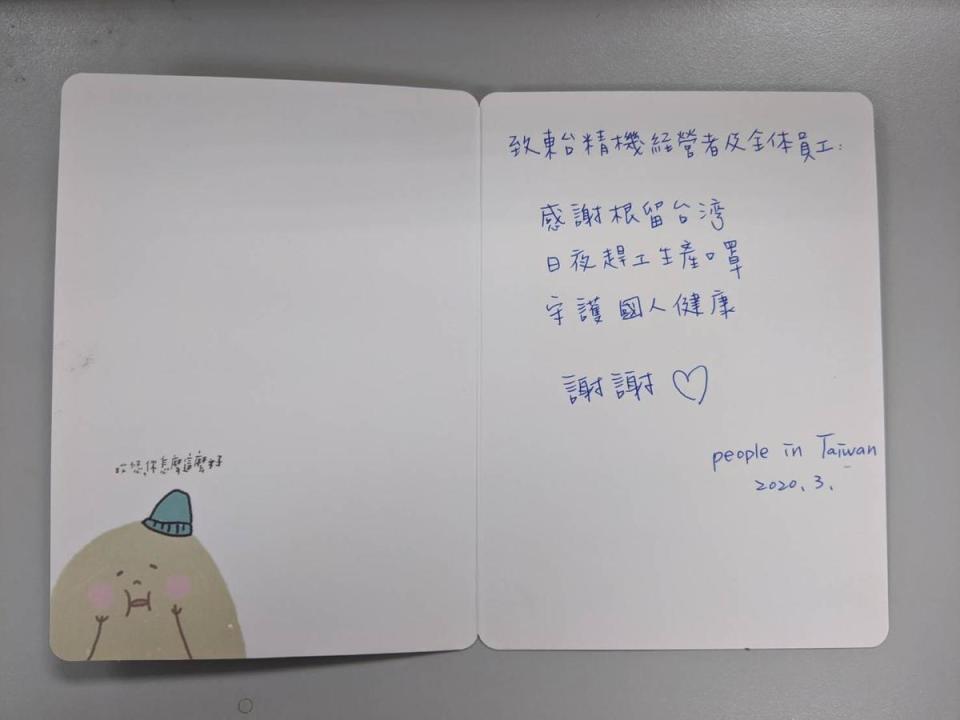 哎慈,你怎麼這麼好
致東台精機経營者及全体員工:
感謝根留台湾
日夜趕工生產口罩
守護國人健康
謝謝♡
people in Taiwan
2020.3.